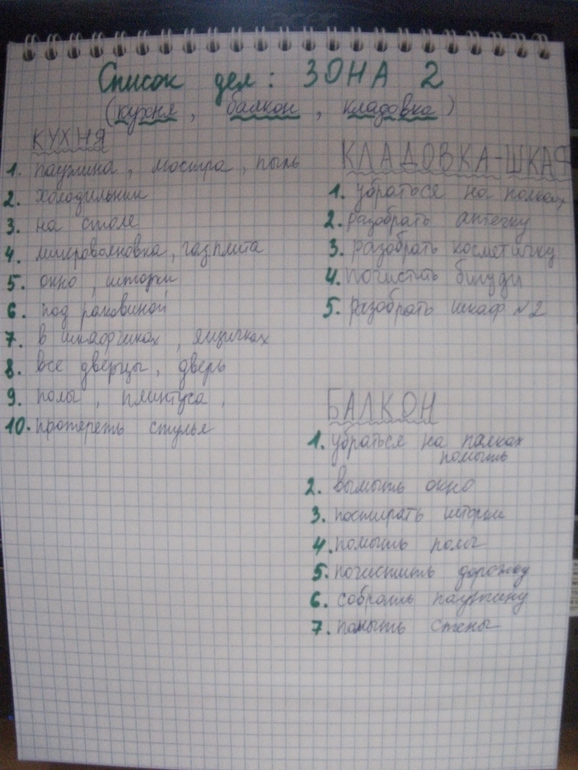 Список дел: ЗОНА 2
(кухня, балкон, кладовка)
КУХНЯ
1. паутина, люстра, пыль
2. холодильник
3. на столе
4. микроволновка, газплита
5. окно, шторки
6. под раковиной
7. в шкафчиках, ящичках
8. все дверцы, дверь
9. полы, плинтуса,
10. протереть стулья
КЛАДОВКА-ШКАФ
1. убраться на полках
2. разобрать аптечку
3. разобрать косметичку
4. почистить бигуди
5. разобрать шкаф №2
БАЛКОН
1. убраться на полках
помыть
2. вымыть окно
3. постирать шторки
4. помыть полы
5. почистить дорожку
6. собрать паутину
7. помыть стены